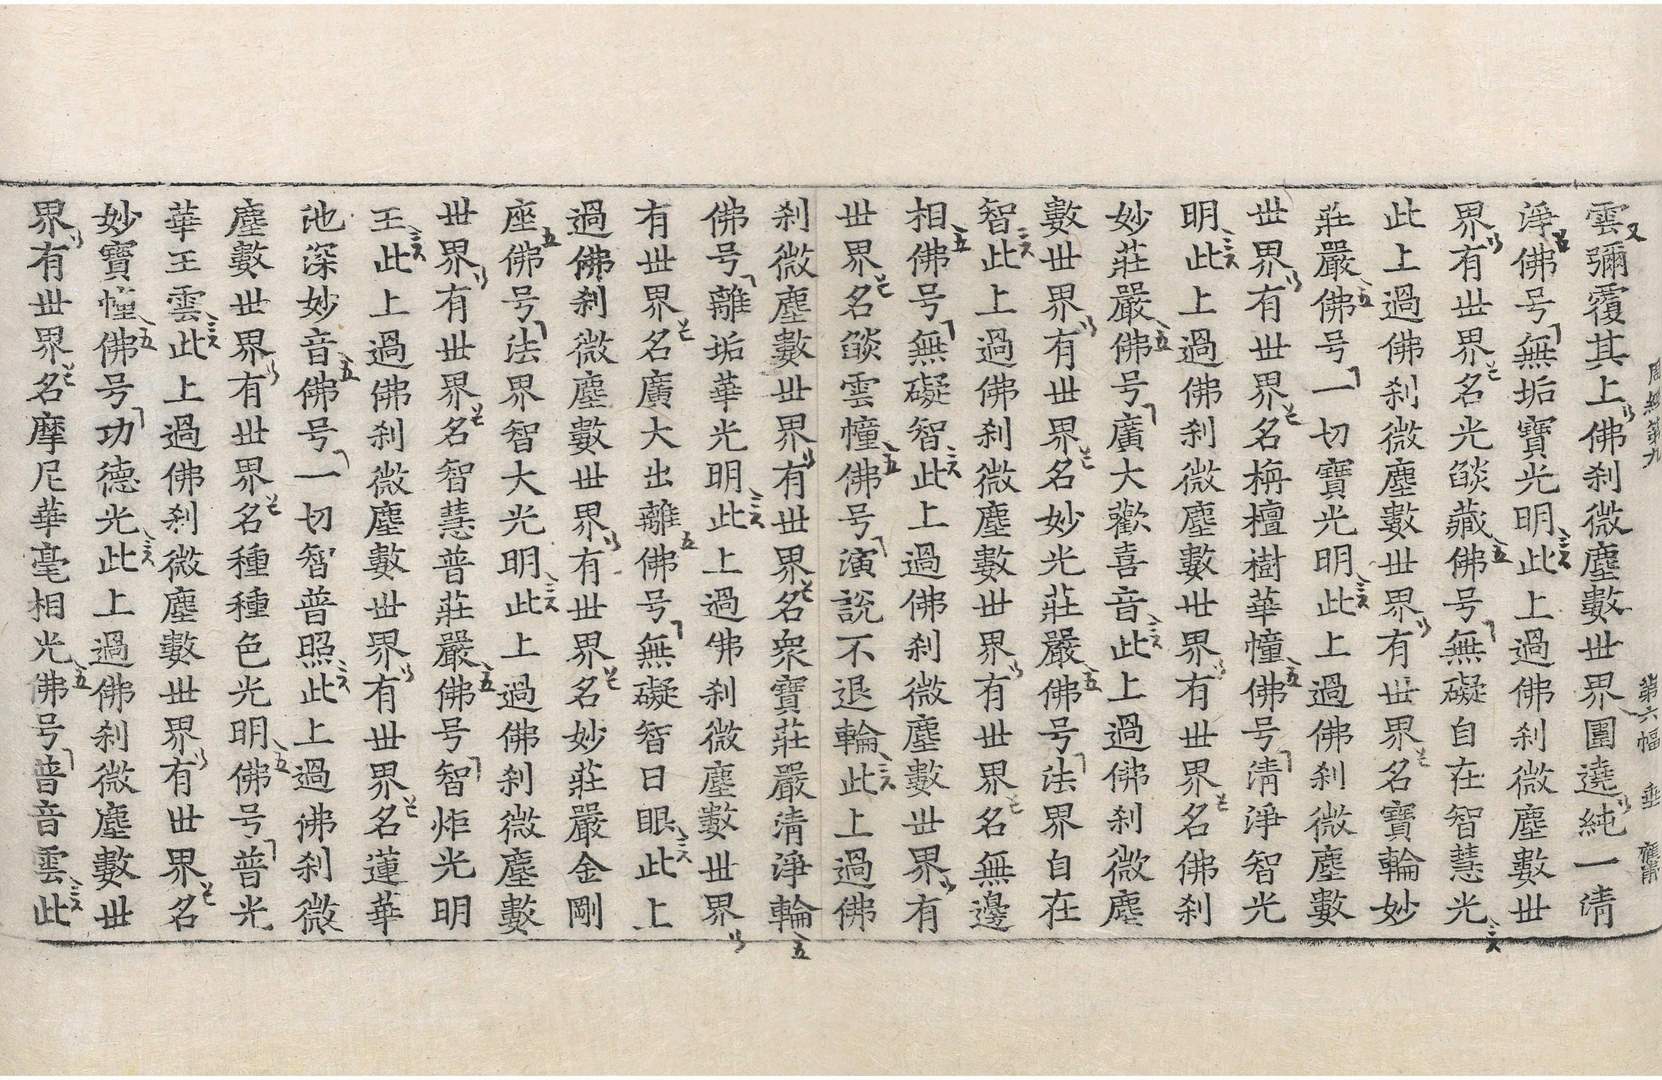 周經第九　第六幅　垂
雲彌覆其上佛刹微塵數世界圍遶純一清
淨佛号無垢寶光明此上過佛刹微塵數世
界有世界名光㷔藏佛号無礙自在智慧光
此上過佛刹微塵數世界有世界名寶輪妙
莊嚴佛号一切寶光明此上過佛刹微塵數
世界有世界名栴檀樹華幢佛号清淨智光
明此上過佛刹微塵數世界有世界名佛刹
妙莊嚴佛号廣大歡喜音此上過佛刹微塵
數世界有世界名妙光莊嚴佛号法界自在
智此上過佛刹微塵數世界有世界名無邊
相佛号無礙智此上過佛刹微塵數世界有
世界名㷔雲幢佛号演說不退輪此上過佛
刹微塵數世界有世界名衆寶莊嚴清淨輪
佛号離垢華光明此上過佛刹微塵數世界
有世界名廣大出離佛号無礙智日眼此上
過佛刹微塵數世界有世界名妙莊嚴金剛
座佛号法界智大光明此上過佛刹微塵數
世界有世界名智慧普莊嚴佛号智炬光明
王此上過佛刹微塵數世界有世界名蓮華
池深妙音佛号一切智普照此上過佛刹微
塵數世界有世界名種種色光明佛号普光
華王雲此上過佛刹微塵數世界有世界名
妙寶幢佛号功德光此上過佛刹微塵數世
界有世界名摩尼華毫相光佛号普音雲此